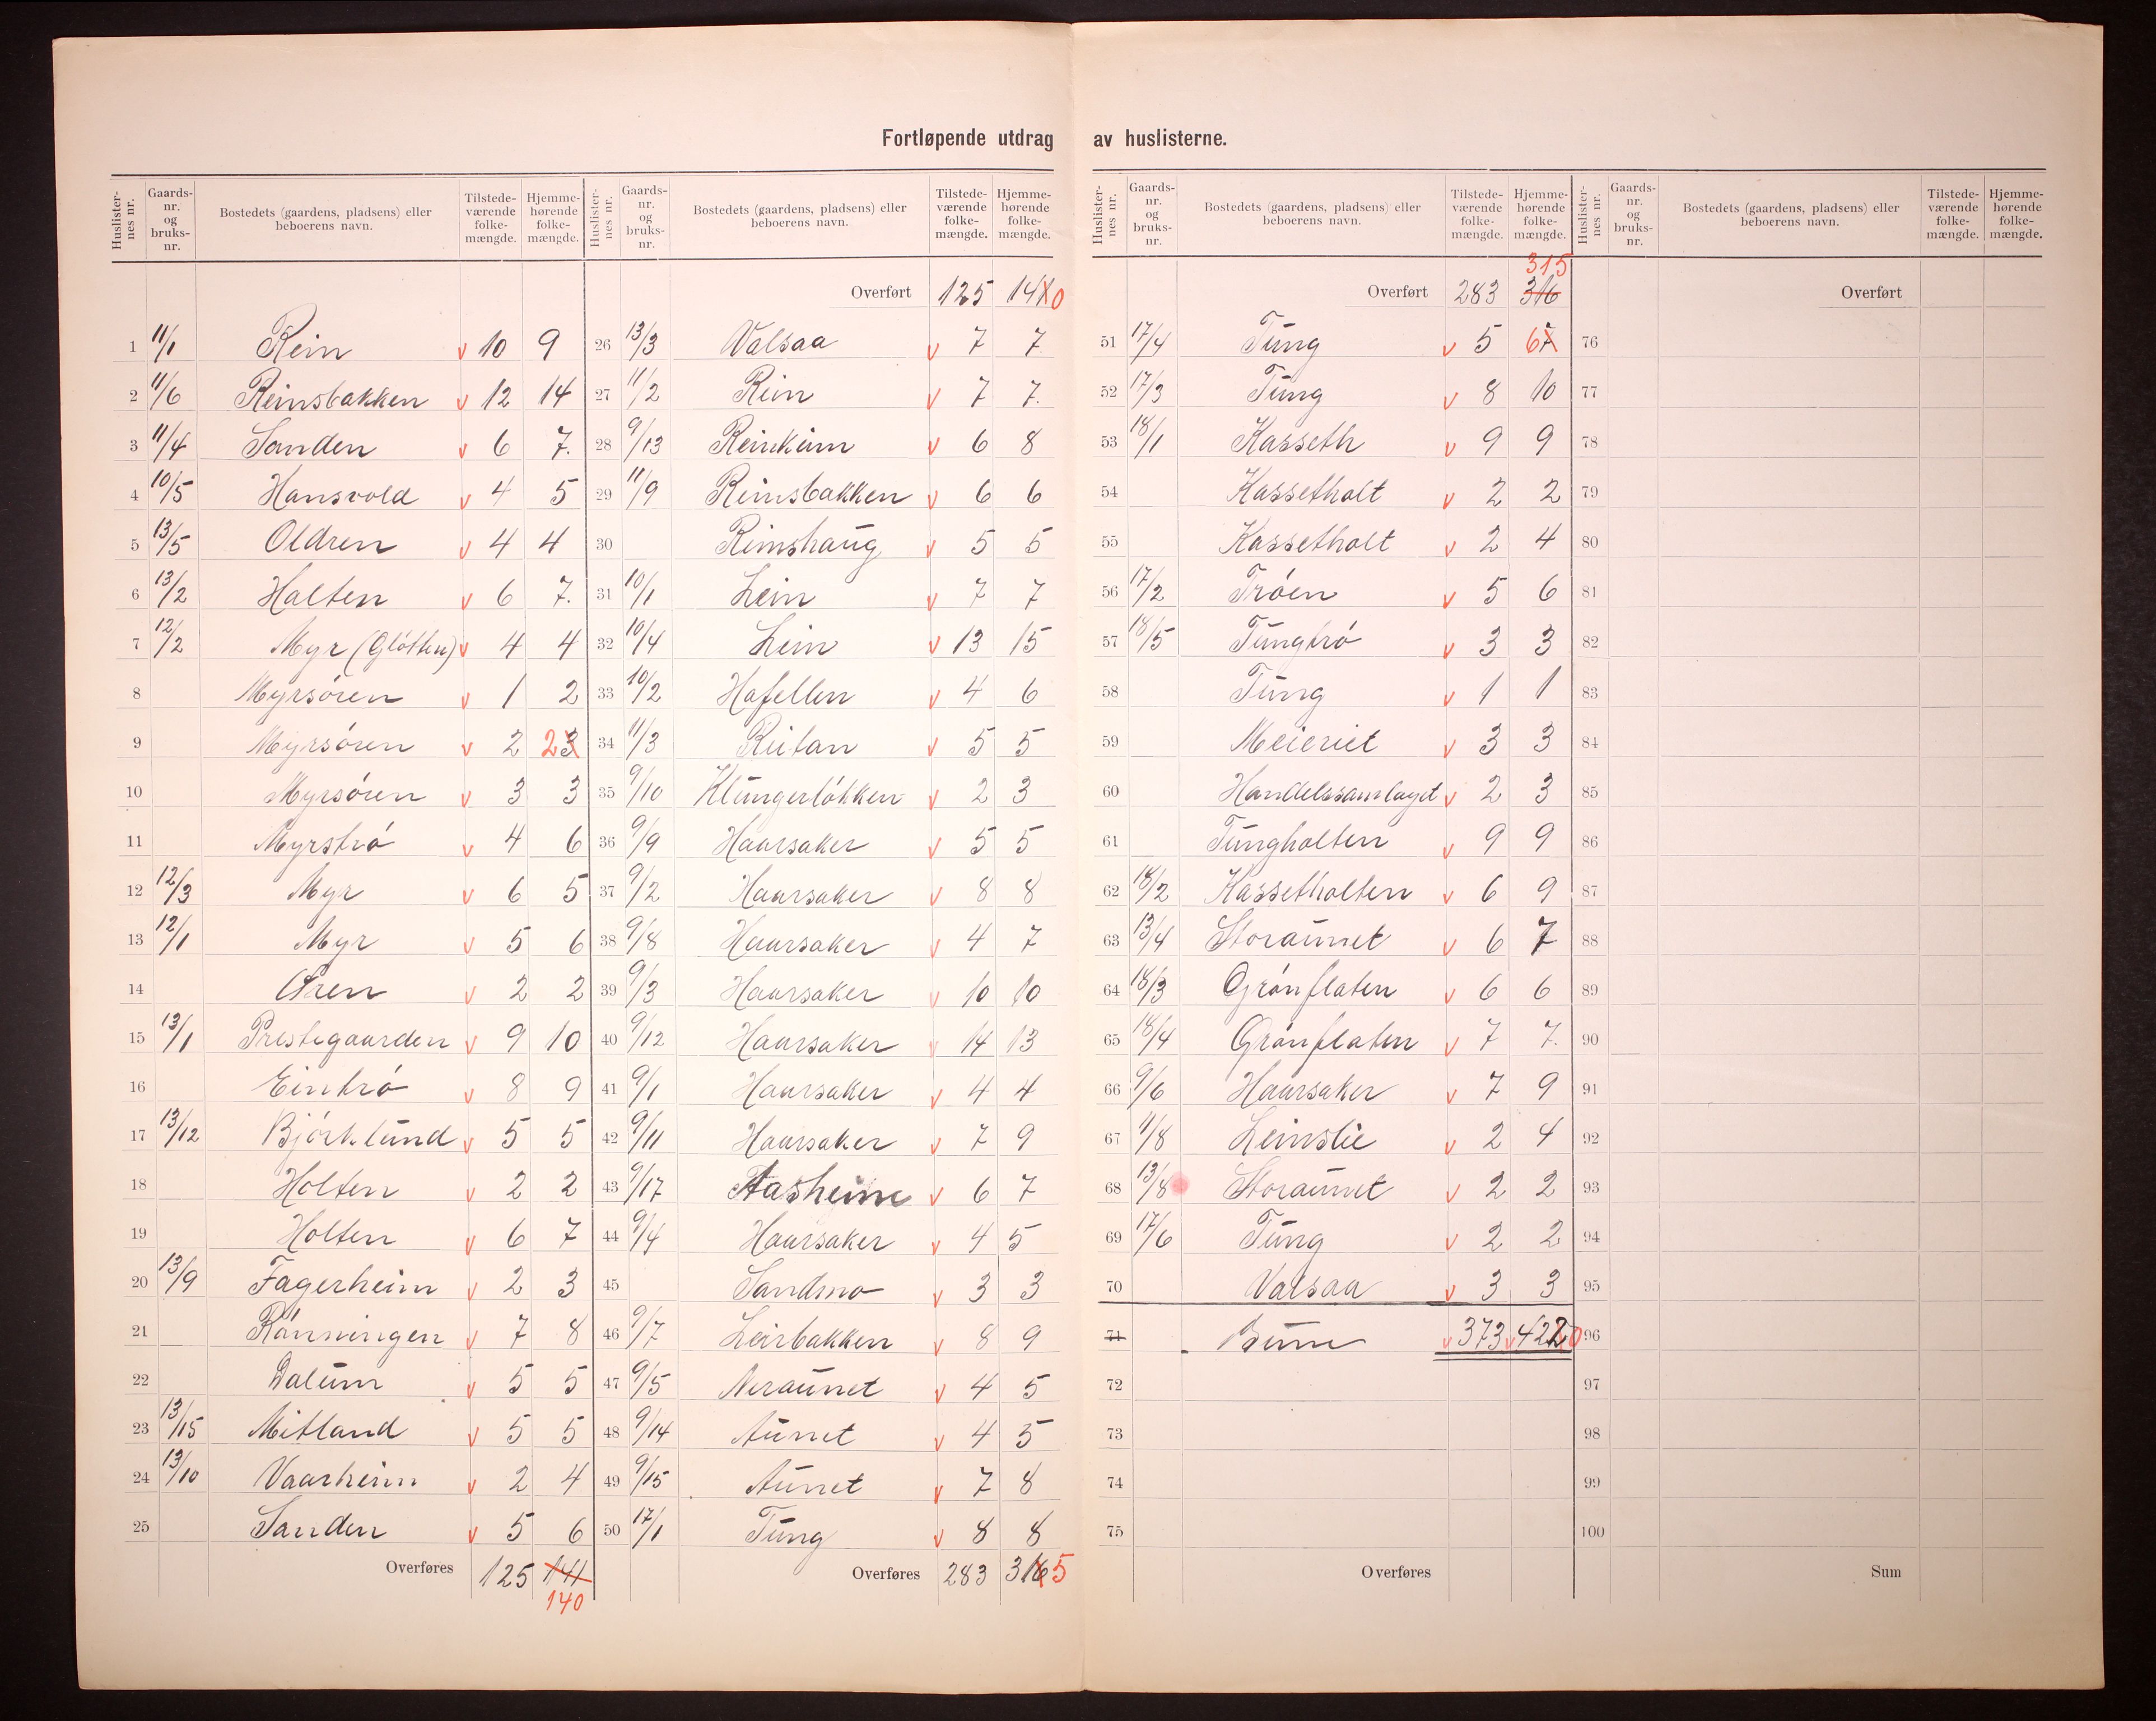 Fortløpende utdrag av huslisterne.
Huslisternes nr. Gaards-nr. og bruks-nr. Bostedets (gaardens, pladsens) eller beboerens navn. Tilstedeværende folkemængde. Hjemmehørende folkemængde.
1 11/1 Rein v 10 9
2 11/6 Reinsbakken v 12 14
3 11/4 Sanden v 6 7.
4 10/5 Hansvold v 4 5
5 13/5 Oldren v 4 4
6 13/2 Halten v 6 7.
7 12/2 Myr (Gløtten) v 4 4
8 Myrsören v 1 2
9 Myrsören v 2 2 3
10 Myrsören v 3 3
11 Myrströ v 4 6
12 12/3 Myr v 6 5
13 12/1 Myr v 5 6
14 Øren v 2 2
15 13/1 Prestegaarden v 9 10
16 Eintrö v 8 9
17 13/12 Björklund v 5 5
18 Holten v 2 2
19 Holten v 6 7
20 13/9 Fagerheim v 2 3
21 Rönningen v 7 8
22 Dalum v 5 5
23 13/15 Mitland v 5 5
24 13/10 Vaarheim v 2 4
25 Sanden v 5 6
Overføres 125 141
140
Huslisternes nr. Gaards-nr. og bruks-nr. Bostedets (gaardens, pladsens) eller beboerens navn. Tilstedeværende folkemængde. Hjemmehørende folkemængde.
Overført 125 141 0
26 13/3 Valsaa v 7 7
27 11/2 Rein v 7 7.
28 9/13 Reinheim v 6 8
29 11/9 Reinsbakken v 6 6
30 Reinshaug v 5 5
31 10/1 Lein v 7 7
32 10/4 Lein v 13 15
33 10/2 Hafellen v 4 6
34 11/3 Reitan v 5 5
35 9/10 Klungerlökken v 2 3
36 9/9 Haarsaker v 5 5
37 9/2 Haarsaker v 8 8
38 9/8 Haarsaker v 4 7
39 9/3 Haarsaker v 10 10
40 9/12 Haarsaker v 14 13
41 9/1 Haarsaker v 4 4
42 9/11 Haarsaker v 7 9
43 9/17 Aasheim v 6 7
44 9/4 Haarsaker v 4 5
45 Sandmo v 3 3
46 9/7 Leirbakken v 8 9
47 9/5 Neraunet v 4 5
48 9/14 Aunet v 4 5
49 9/15 Aunet v 7 8
50 17/1 Tung v 8 8
Overføres 283 316 5
Huslisternes nr. Gaards-nr. og bruks-nr. Bostedets (gaardens, pladsens) eller beboerens navn. Tilstedeværende folkemængde. Hjemmehørende folkemængde.
315
Overført 283 316
51 17/4 Tung v 5 6 7
52 17/3 Tung v 8 10
53 18/1 Kasseth v 9 9
54 Kassetholt v 2 2
55 Kassetholt v 2 4
56 17/2 Tröen v 5 6
57 18/5 Tungtrö v 3 3
58 Tung v 1 1
59 Meieriet v 3 3
60 Handelssamlaget v 2 3
61 Tungholten v 9 9
62 18/2 Kassetholten v 6 9
63 13/4 Storaunet v 6 7
64 18/3 Grönflaten v 6 6
65 18/4 Grönflaten v 7 7.
66 9/6 Haarsaker v 7 9
67 11/8 Leinslie v 2 4
68 13/8 Storaunet v 2 2
69 17/6 Tung v 2 2
70 Valsaa v 3 3
71 v 373 v 422 0
72
73
74
75
Overføres
Huslisternes nr. Gaards-nr. og bruks-nr. Bostedets (gaardens, pladsens) eller beboerens navn. Tilstedeværende folkemængde. Hjemmehørende folkemængde.
Overført
76
77
78
79
80
81
82
83
84
85
86
87
88
89
90
91
92
93
94
95
96
97
98
99
100
Sum